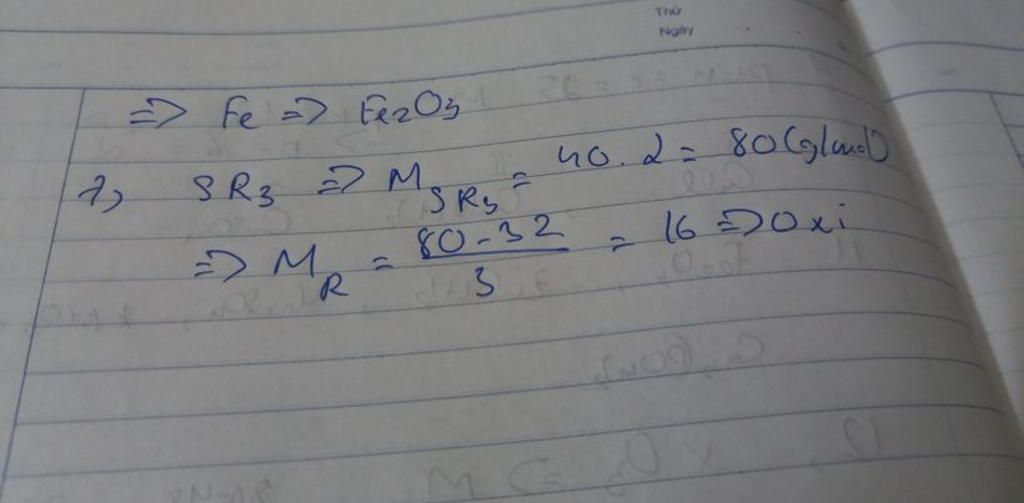 Thứ
Ngày
=> Fe => Fe2O3
7) SR3 => M SR3 = 40.2 = 80 (g/mol)
=> M R = 80-32 / 3 = 16 => Oxi